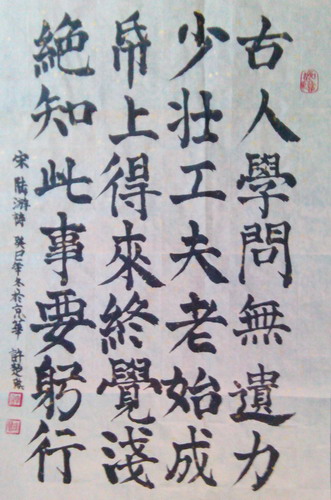 古人學問無遺力
少壮工夫老始成
帋上得來終覺淺
絶知此事要躬行
宋 陸游詩 癸巳年冬於京華 許楚